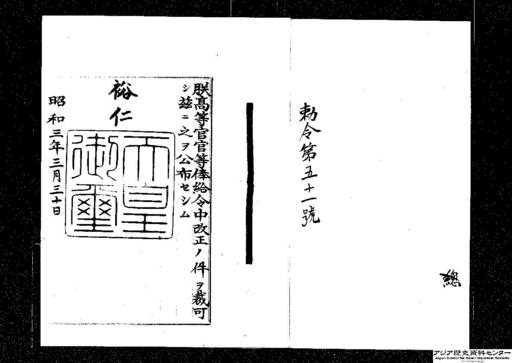 總
勅令第五十一號
朕高等官官等俸給令中改正ノ件ヲ裁可
シ茲ニ之ヲ公布セシム
裕仁
天皇御璽
昭和三年三月三十日
アジア歴史資料センター
Japan Center for Asian Historical Records